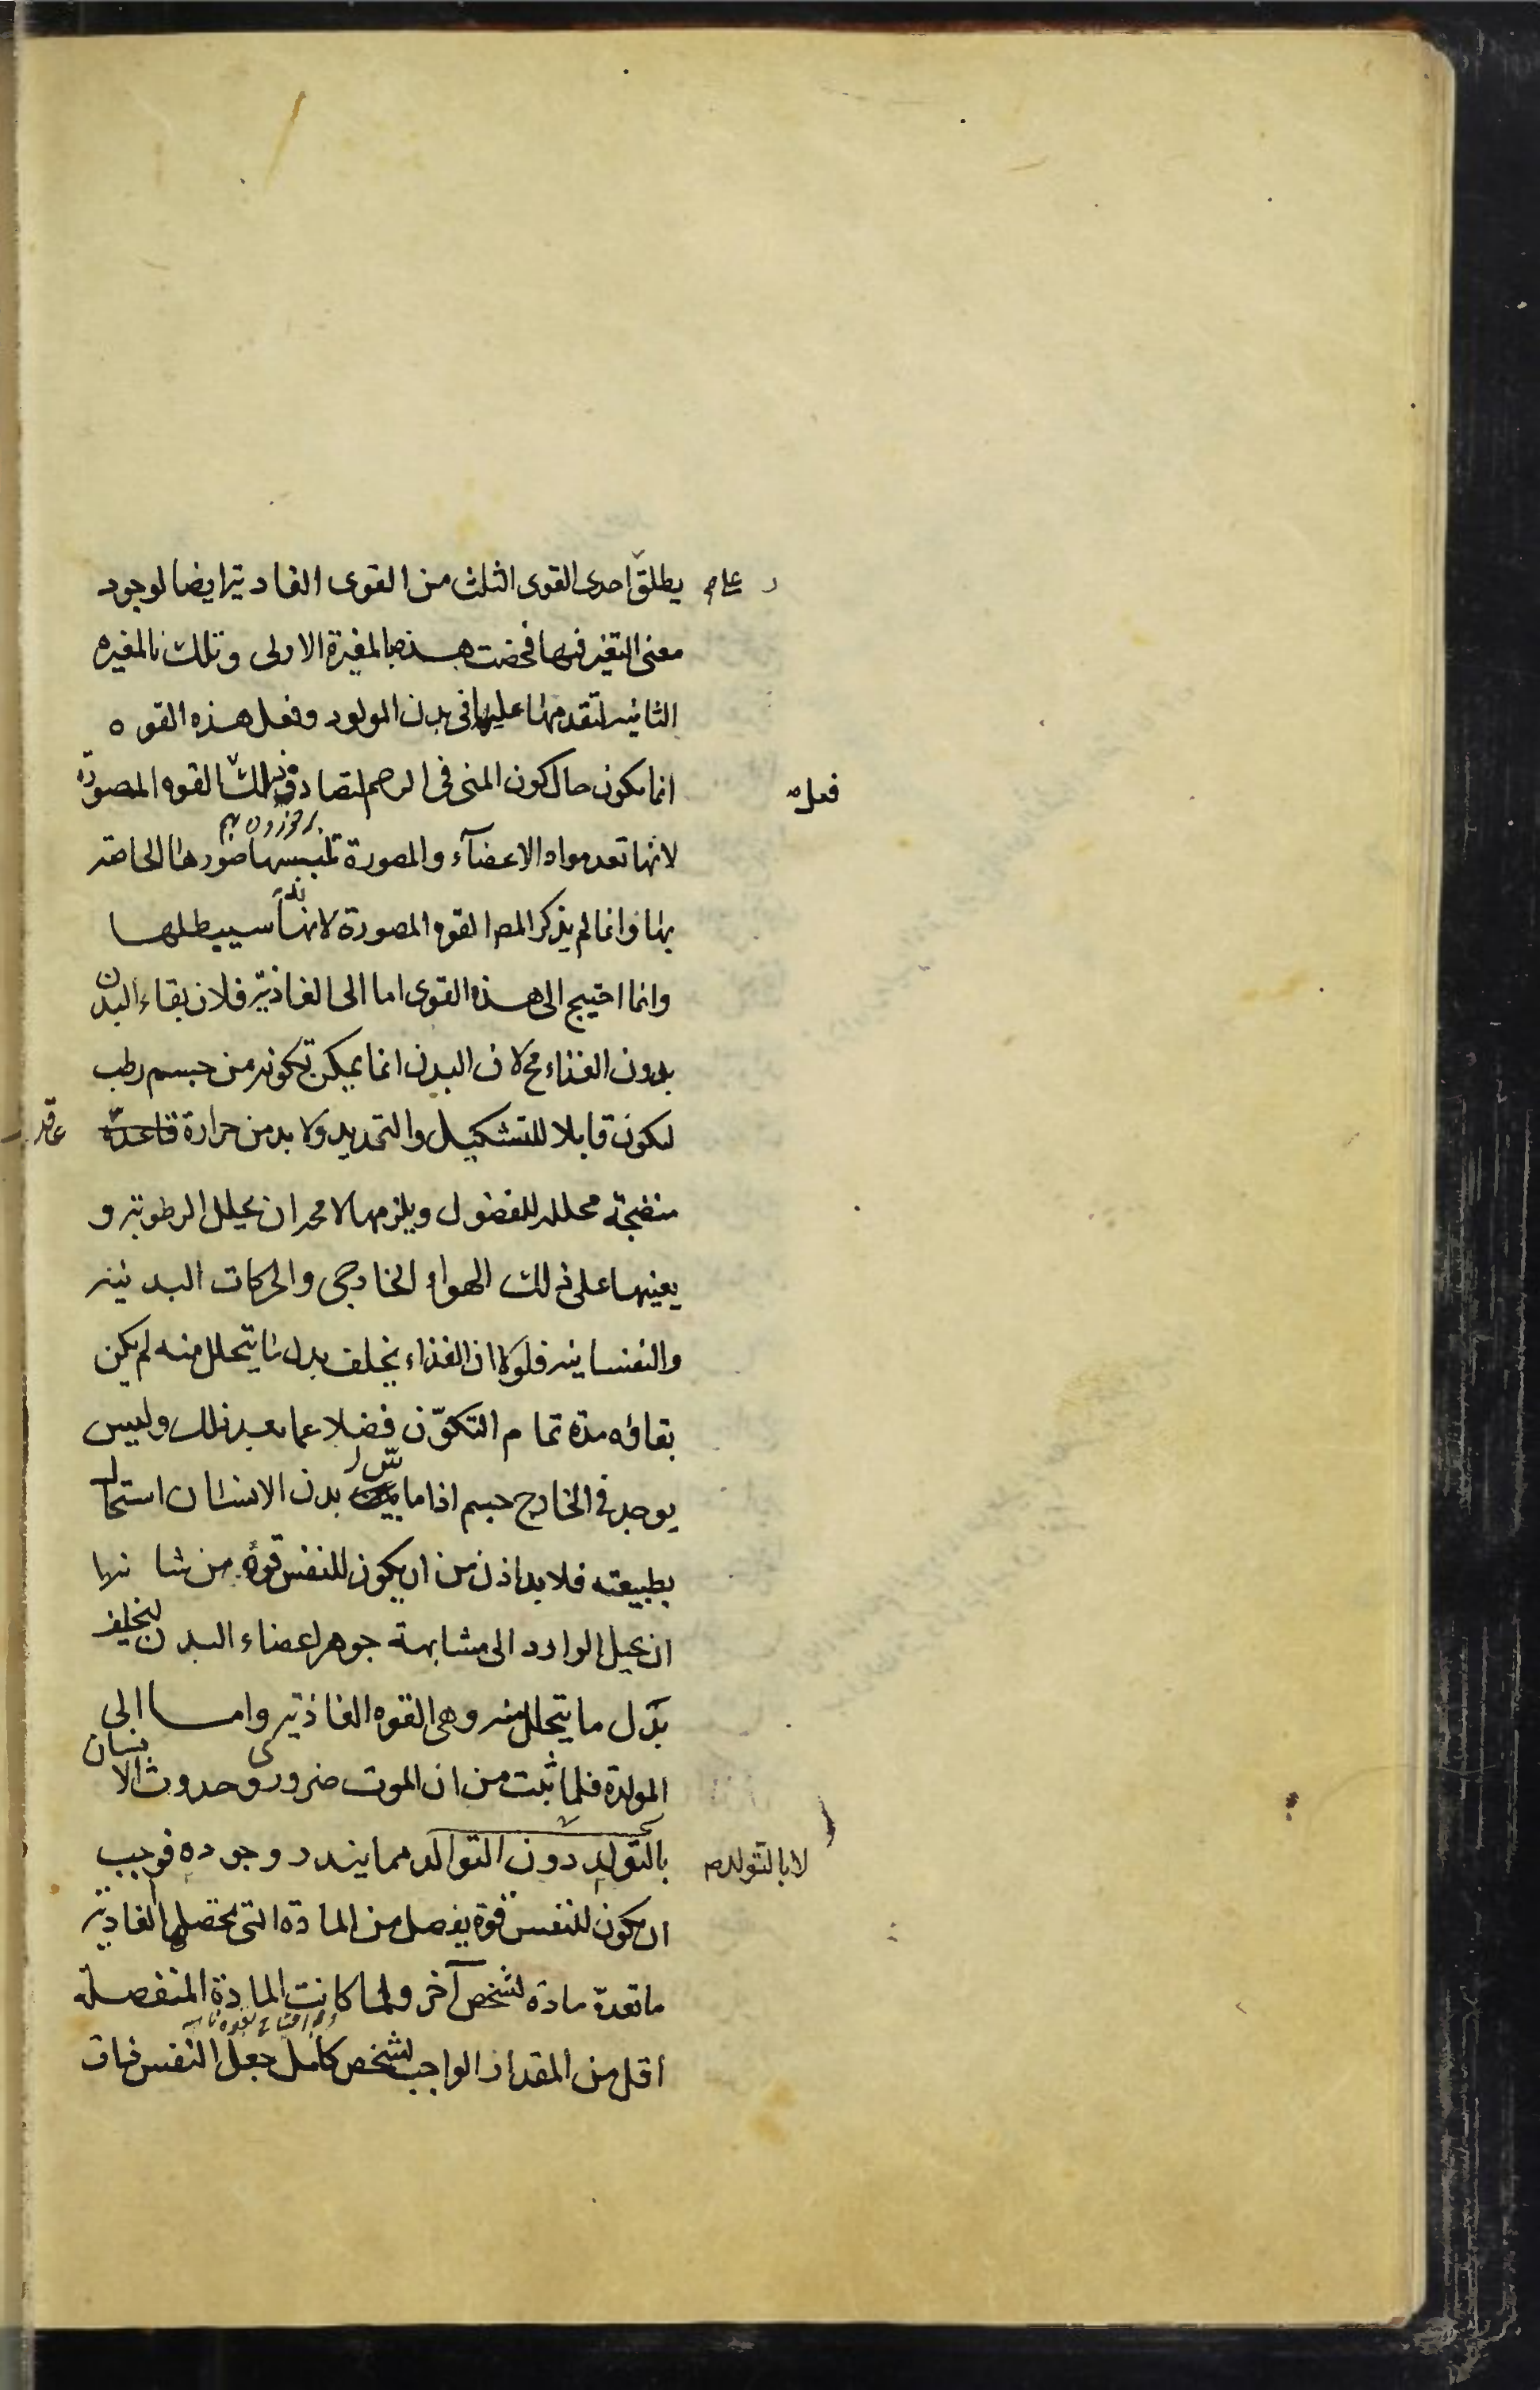 يطلق احدى القوى الثلث من القوى الغاذية ايضا لوجود
على
معنى التغير فيها فخصت هذه بالمغيرة الاولى وتلك بالمغيره
الثانيه لتقدمها عليها فى بدن المولود وفعل هذه القوه
انما يكون حال كون المنى فى الرحم لتصادف القوه المصورة
فعل
لانها تعد مواد الاعضآء والمصورة تلبسها صورها الخاصه
بها وانما لم يذكر المص القوه المصورة لانه سيبطلها
وانما احتيج الى هذه القوى اما الى الغاذية فلان بقاء البدن
بدون الغذاء مح لان البدن انما يمكن تكونه من جسم رطب
ليكون قابلا للتشكيل والتمديد ولا بد من حرارة عاقدة
منضجة محللة للفضول ويلزمها لا محه ان يحلل الرطوبة و
يعينها على ذلك الهواء الخارجى والحركات البدنيه
والنفسانيه فلولا ان الغذاء يخلف بدل ما يتحلل منه لم يكن
بقاؤه مدة تمام التكوّن فضلا عما بعد ذلك وليس
يوجد فى الخارج جسم اذا ماس بدن الانسان استحال
بطبيعته فلا بد اذن من ان يكون للنفس قوة من شانها
ان يحيل الوارد الى مشابهة جوهر اعضاء البدن ليخلف
بدل ما يتحلل منه وهى القوه الغاذية واما الى
المولدة فلما ثبت من ان الموت ضرورى وحدوث الانسان
بالتولد دون التوالد مما يندر وجوده فوجب
لا بالتولد
ان يكون للنفس قوة يفصل من المادة التى تحصلها الغاذية
ما تعدّه مادة لشخص آخر ولما كانت المادة المنفصلة
اقل من المقدار الواجب لشخص كامل جعل النفس ذات